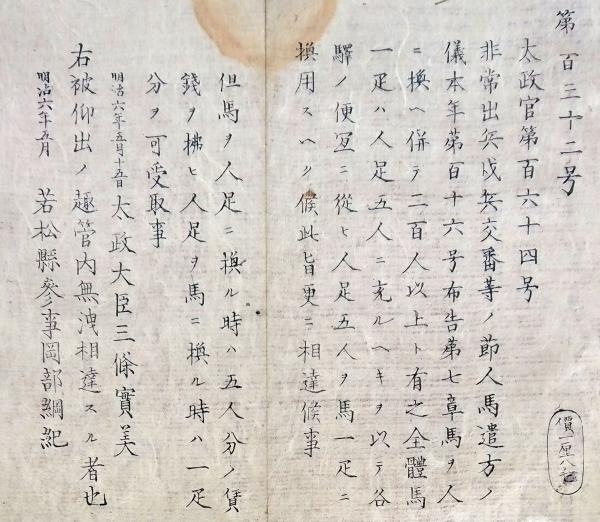 第百三十二号
太政官第百六十四号
非常出兵戍兵交番等ノ節人馬遣方ノ
儀本年第百十六号布告第七章馬ヲ人
ニ換ヘ併テ二百人以上ト有之全體馬
一疋ハ人足五人ニ充ルヘキヲ以テ各
驛ノ便宜ニ從ヒ人足五人ヲ馬一疋ニ
換用スヘク候此旨更ニ相達候事
但馬ヲ人足ニ換ル時ハ五人分ノ賃
錢ヲ拂ヒ人足ヲ馬ニ換ル時ハ一疋
分ヲ可受取事
明治六年五月十五日 太政大臣三條實美
右被仰出ノ趣管内無洩相達スル者也
明治六年五月 若松縣參事岡部綱紀
價一厘八毛